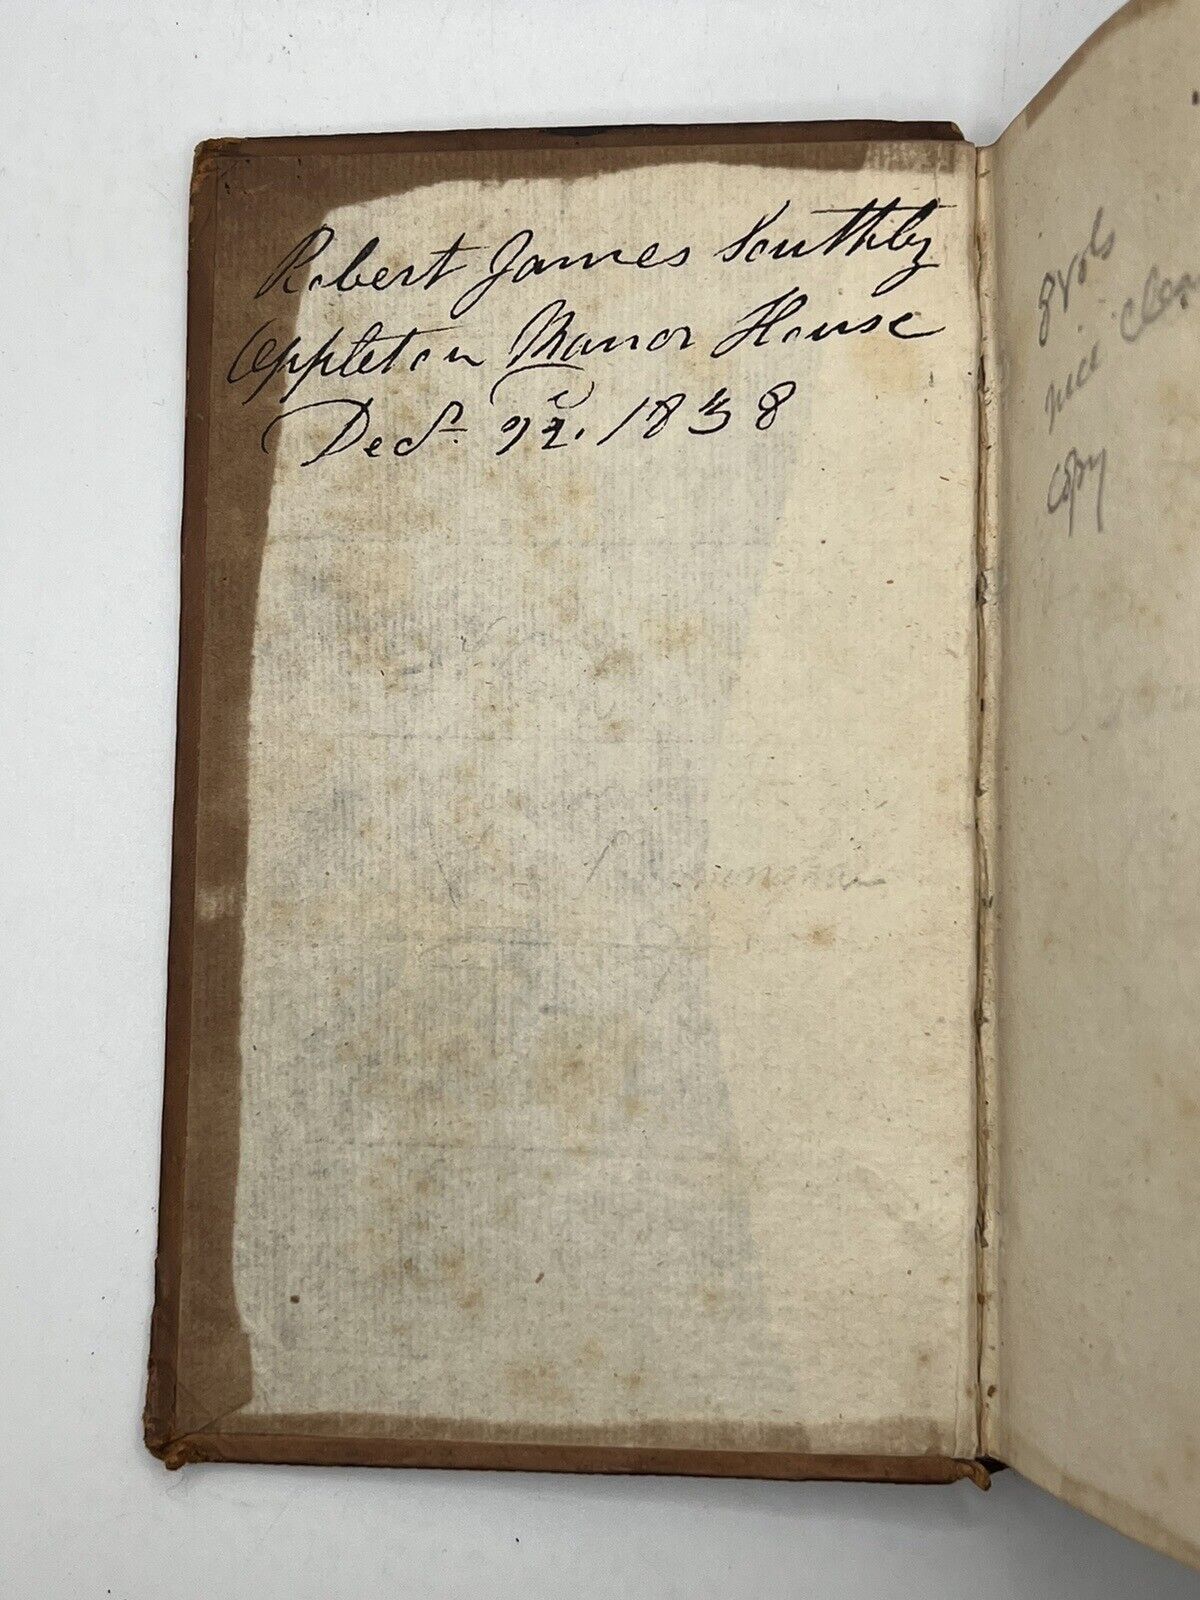 Robert James Southby
Appleton Manor House
Decr. 1838
2 vols
nice clean
copy